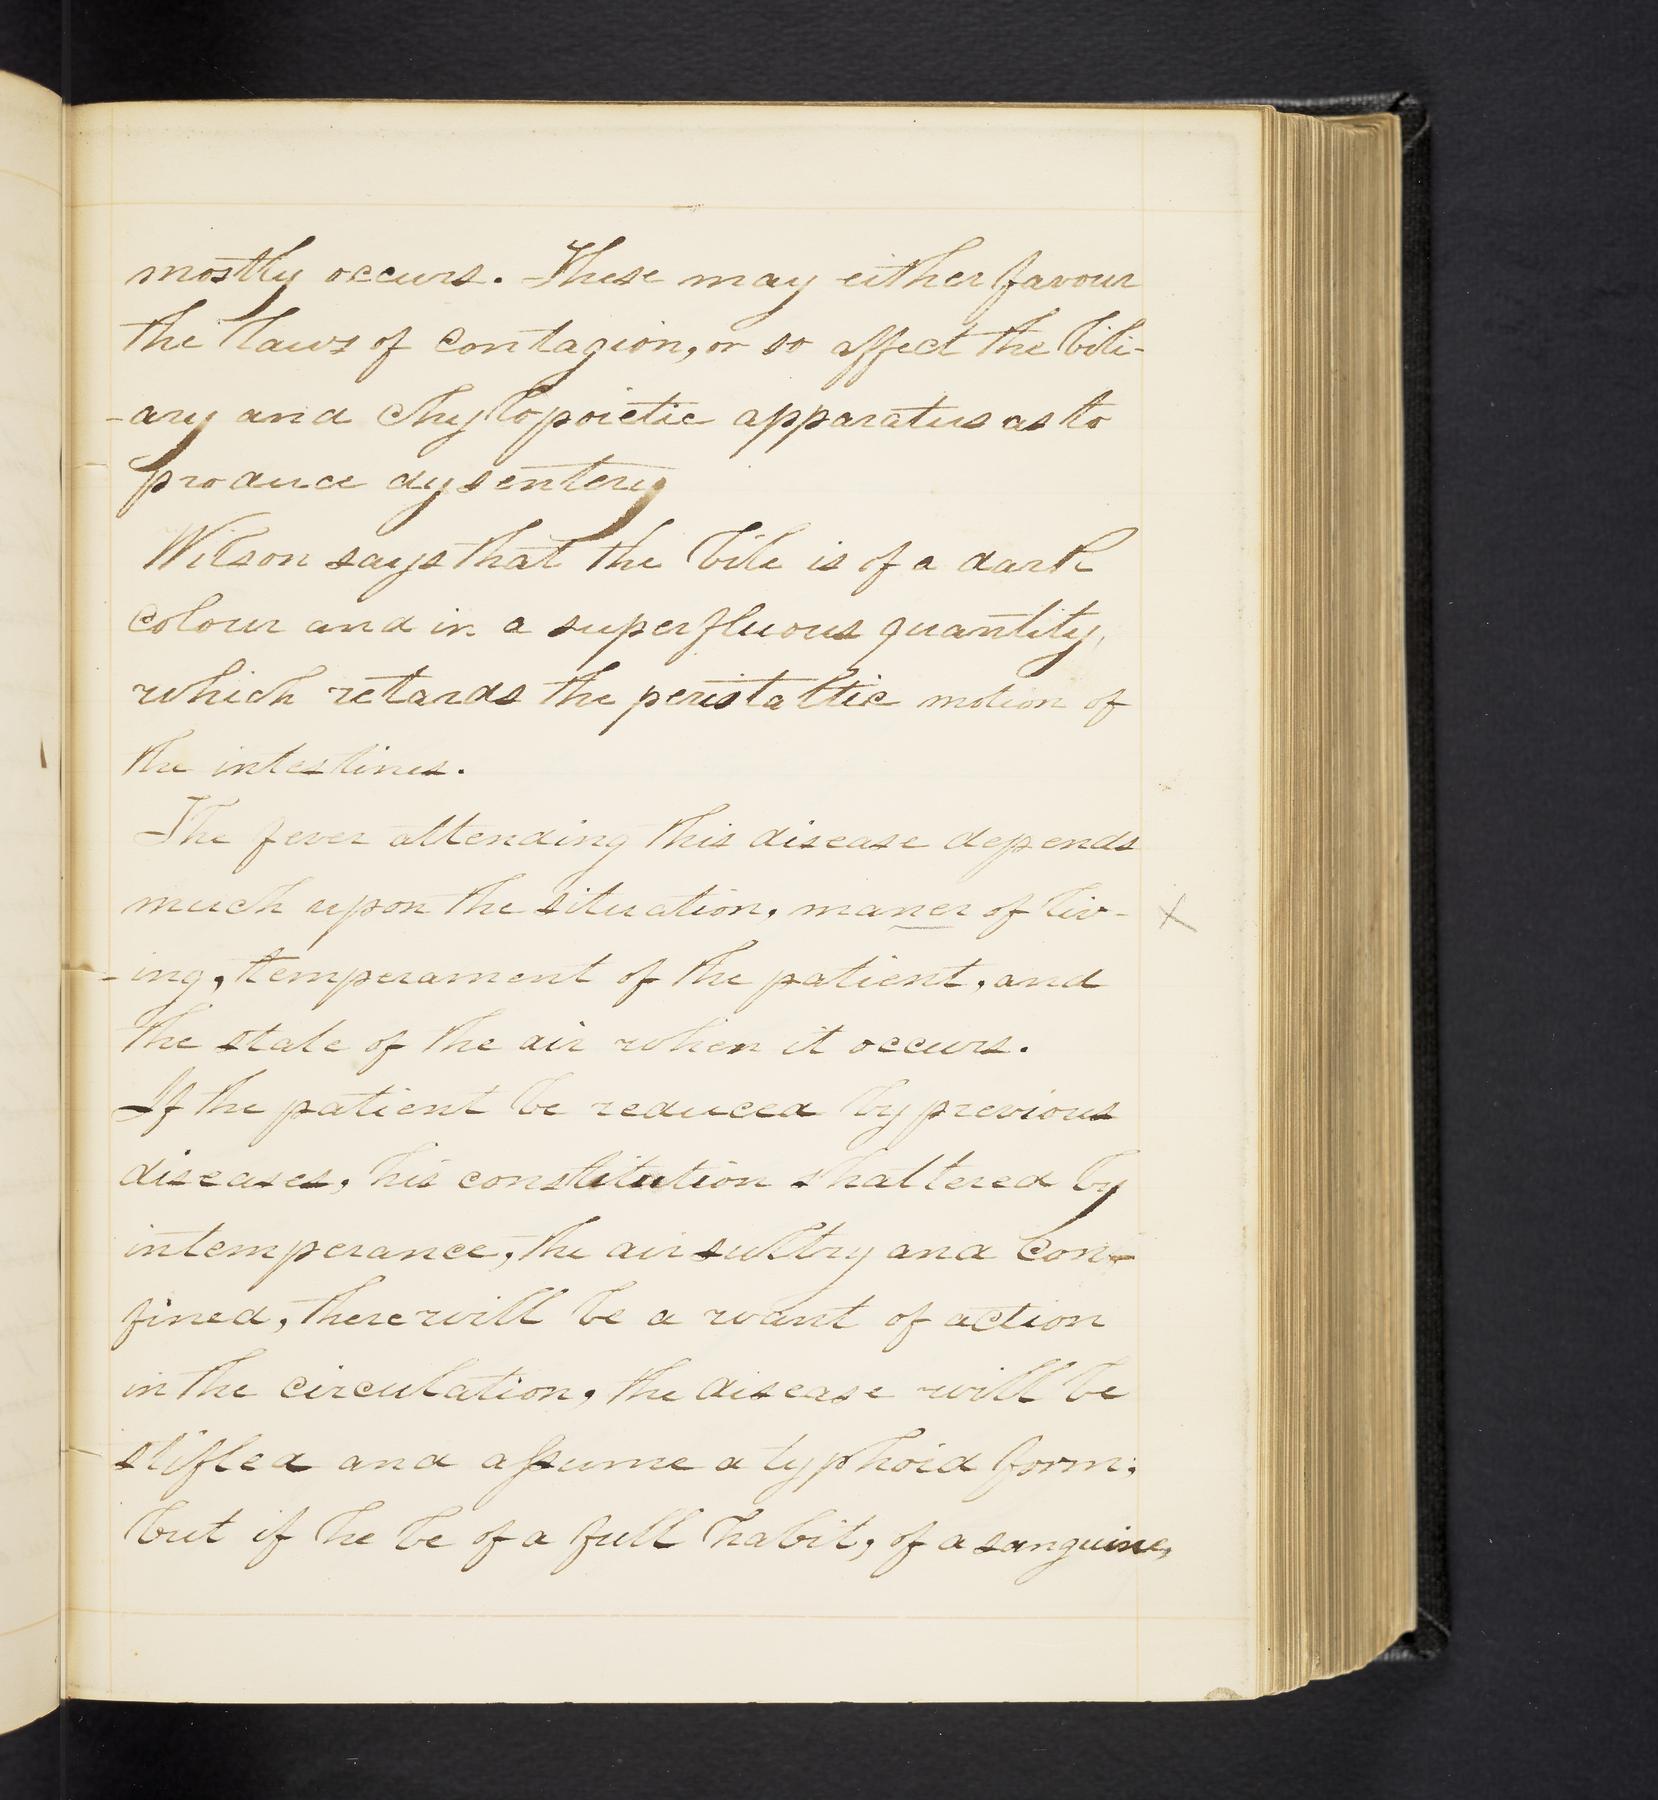 mostly occurs. These may either favour
the laws of contagion, or so affect the bili-
-ary and chylopoietic apparatus as to
produce dysentery
Wilson says that the bile is of a dark
colour and in a superfluous quantity,
which retards the peristaltic motion of
the intestines.
The fever attending this disease depends
much upon the situation, maner of liv-
-ing, temperament of the patient, and
the state of the air when it occurs.
If the patient be reduced by previous
diseases, his constitution shattered by
intemperance, the air sultry and con-
fined, there will be a want of action
in the circulation, the disease will be
stifled and assume a typhoid form;
but if he be of a full habit, of a sanguine,